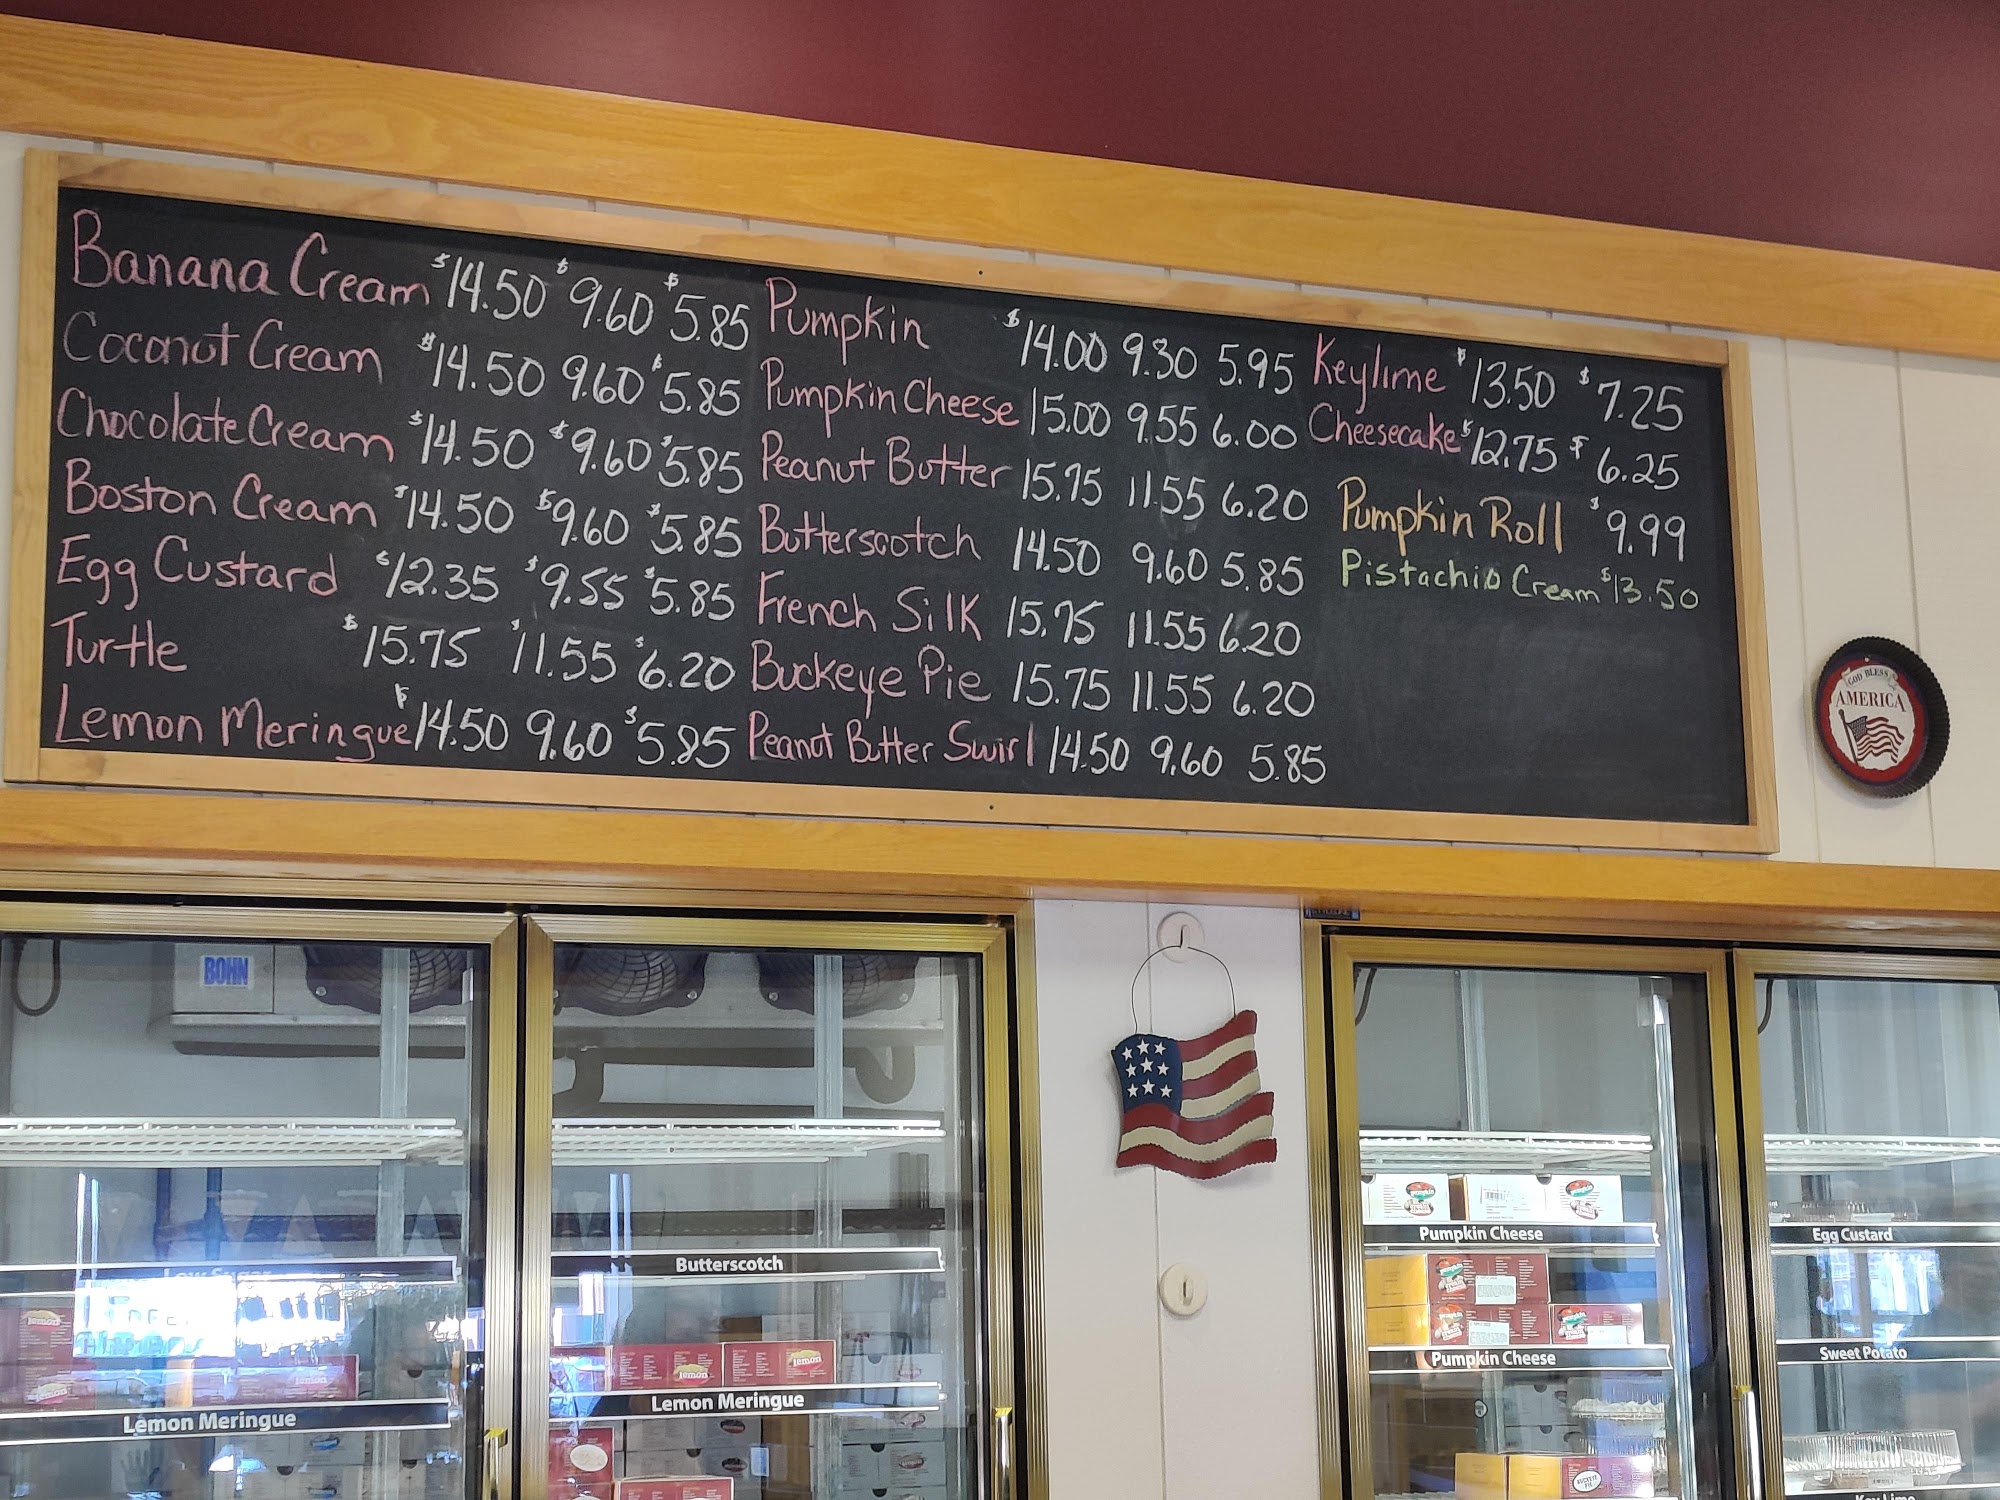 Banana Cream $14.50 $9.60 $5.85
Coconut Cream $14.50 9.60 $5.85
Chocolate Cream $14.50 $9.60 $5.85
Boston Cream $14.50 $9.60 $5.85
Egg Custard $12.35 $9.55 $5.85
Turtle $15.75 $11.55 $6.20
Lemon Meringue $14.50 9.60 $5.85
Pumpkin $14.00 9.30 5.95
Pumpkin Cheese 15.00 9.55 6.00
Peanut Butter 15.75 11.55 6.20
Butterscotch 14.50 9.60 5.85
French Silk 15.75 11.55 6.20
Buckeye Pie 15.75 11.55 6.20
Peanut Butter Swirl 14.50 9.60 5.85
Keylime $13.50 $7.25
Cheesecake $12.75 $6.25
Pumpkin Roll $9.99
Pistachio Cream $13.50
GOD BLESS
AMERICA
BOHN
Butterscotch
Lemon Meringue
Lemon Meringue
lemon
lemon
Pumpkin Cheese
Pumpkin Cheese
Egg Custard
Sweet Potato
Key Lime
BUCKEYE
PIE